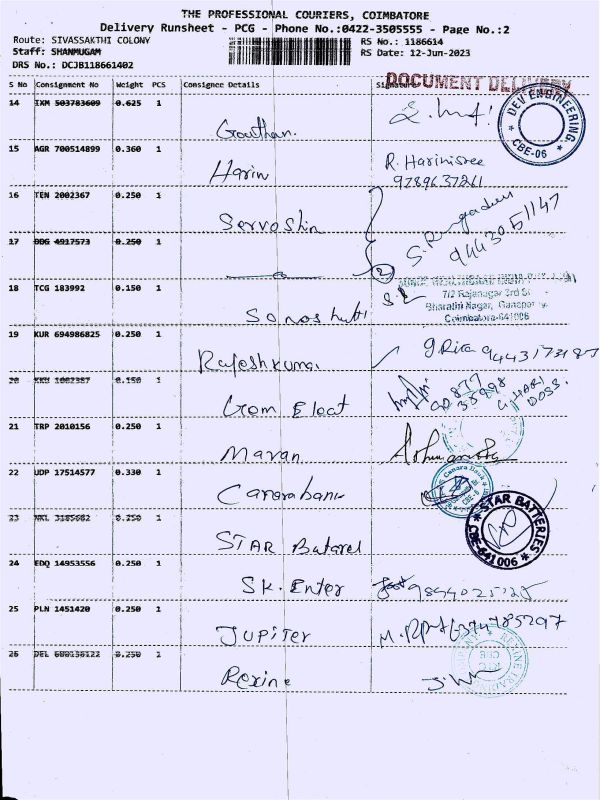 THE PROFESSIONAL COURIERS, COIMBATORE
Delivery Runsheet - PCG - Phone No.:0422-3505555 - Page No.:2
Route: SIVASSAKTHI COLONY
RS No.: 1186614
Staff: SHANMUGAM
RS Date: 12-Jun-2023
DRS No.: DCJB118661402
DOCUMENT DELIVERY
S No Consignment No Weight PCS Consignee Details Signature
14 IXM 503783609 0.625 1
Gowthan.
DEV ENGINEERING
CBE-06
15 AGR 700514899 0.360 1
Harin
R. Harinisree
9789637261
16 TEN 2002367 0.250 1
Servoshin
9443051147
17 DDG 4917573 0.250 1
2
18 TCG 183992 0.150 1
7/2 Rajanagar 3rd St
Bharathi Nagar, Ganapathy
Coimbatore-641006
19 KUR 694986825 0.250 1
Rajeshkumar
20 KKN 1002387 0.150 1
HARI
DOSS.
21 TRP 2010156 0.250 1
Maran
22 UDP 17514577 0.330 1
Canarabank
Canara Bank
23 NKL 3185682 0.250 1
STAR
STAR BATTERIES
CBE-641 006
24 EDQ 14953556 0.250 1
SK. Enter
25 PLN 1451420 0.250 1
JUPITER
26 DEL 600136122 0.250 1
Rexine
REXINE TRADING
CBE